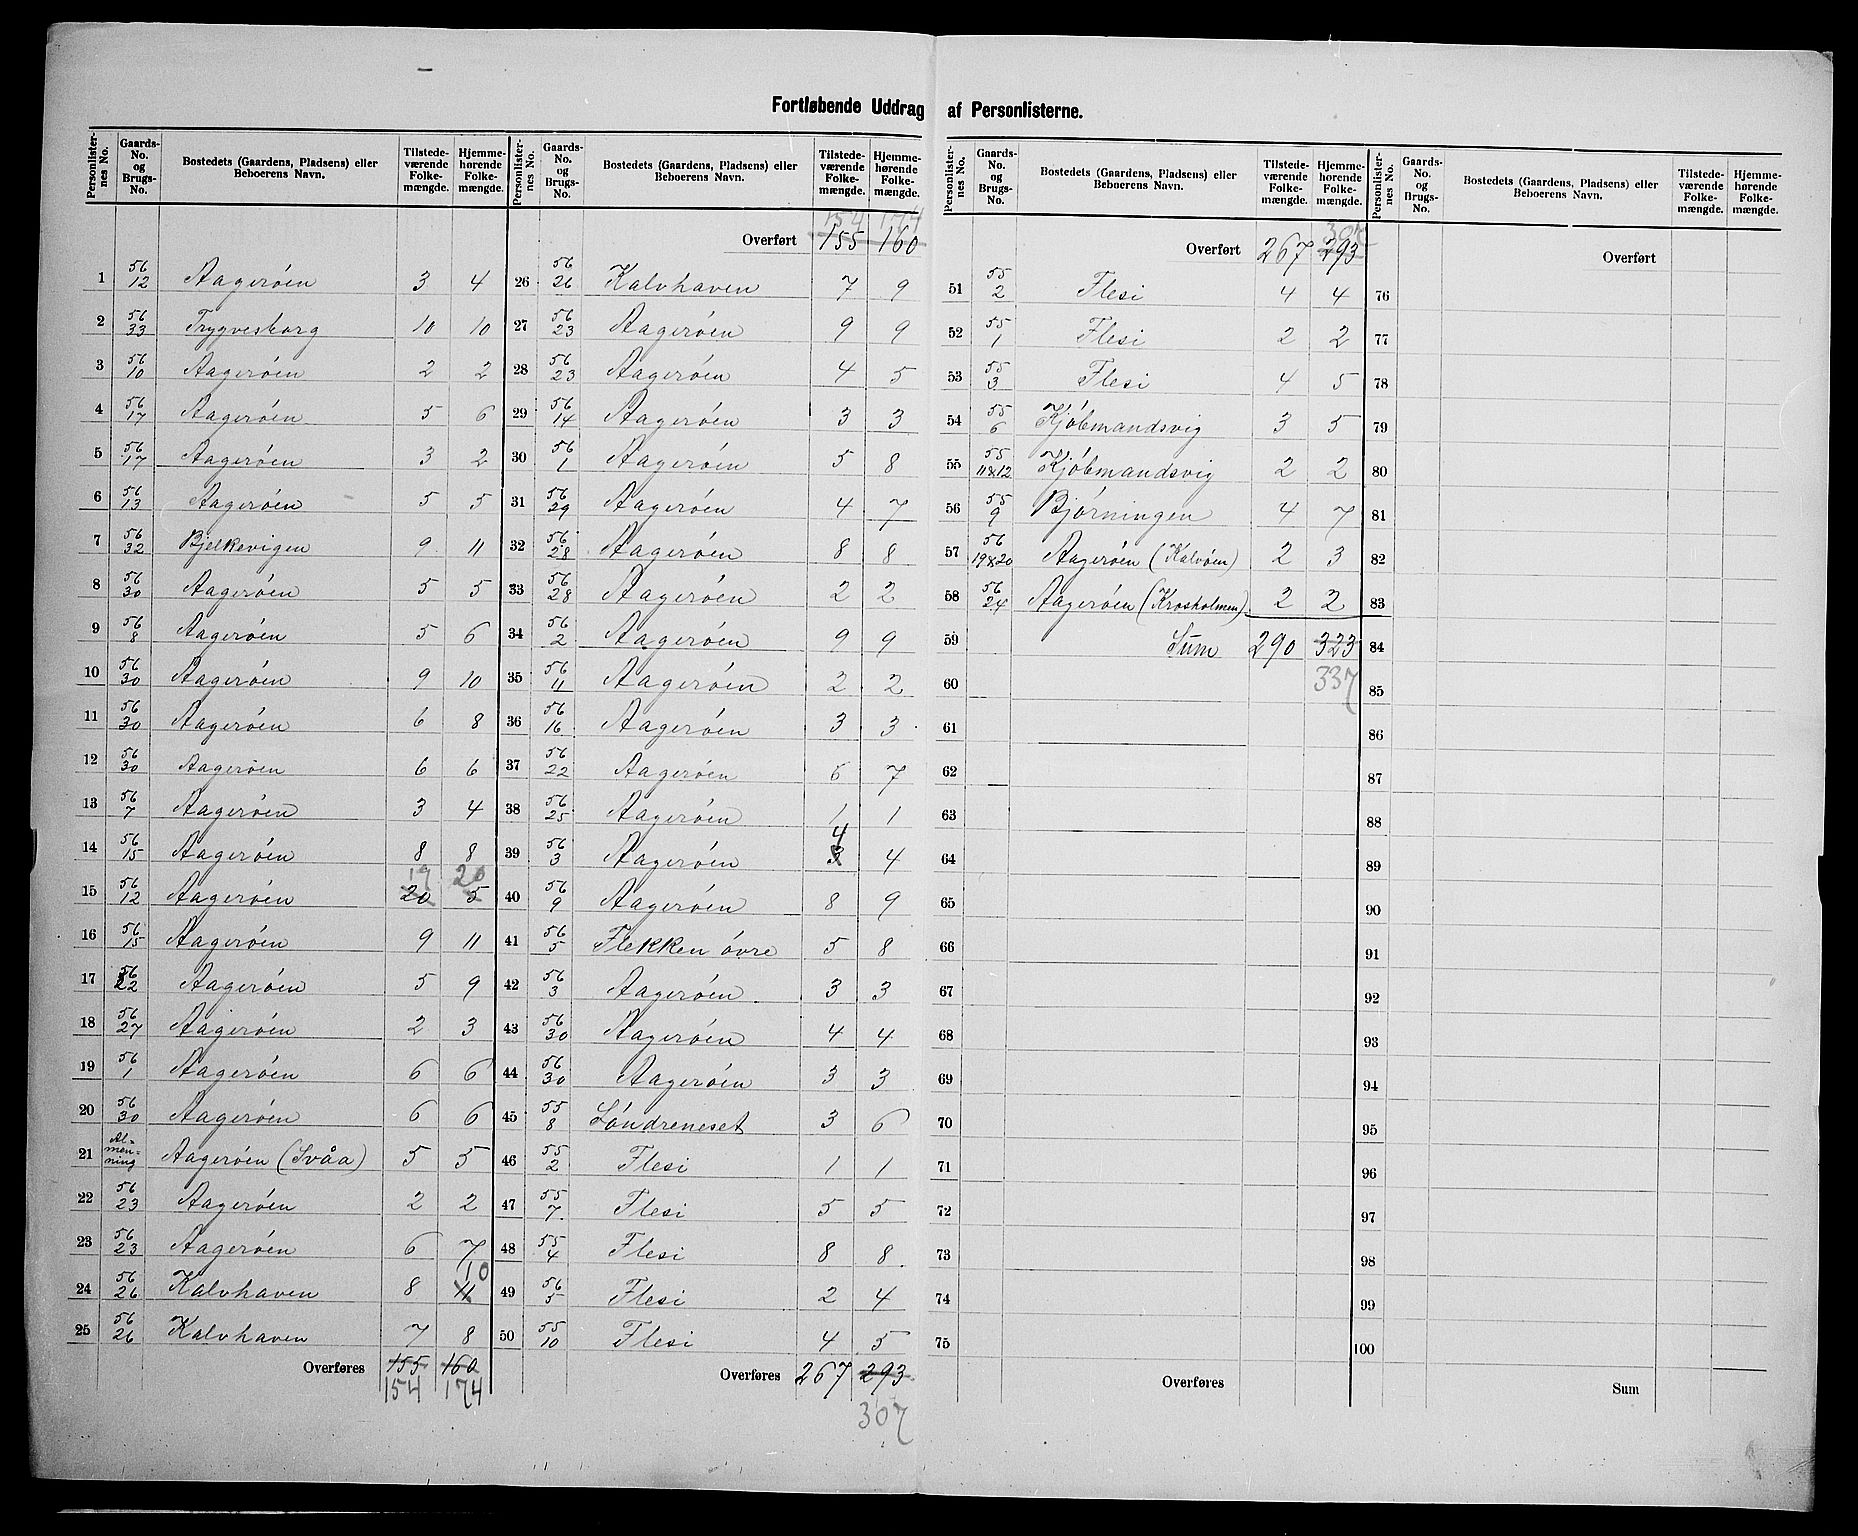 Fortløbende Uddrag af Personlisterne.
Personlisternes No. | Gaards-No. og Brugs-No. | Bostedets (Gaardens, Pladsens) eller Beboerens Navn. | Tilstedeværende Folkemængde. | Hjemmehørende Folkemængde.
1 56/12 Aagerøen 3 4
2 56/33 Trygvesborg 10 10
3 56/10 Aagerøen 2 2
4 56/17 Aagerøen 5 6
5 56/17 Aagerøen 3 2
6 56/13 Aagerøen 5 5
7 56/32 Bjelkevigen 9 11
8 56/30 Aagerøen 5 5
9 56/8 Aagerøen 5 6
10 56/30 Aagerøen 9 10
11 56/30 Aagerøen 6 8
12 56/30 Aagerøen 6 6
13 56/7 Aagerøen 3 4
14 56/15 Aagerøen 8 8
19 20
15 56/12 Aagerøen 20 5
16 56/15 Aagerøen 9 11
17 56/22 Aagerøen 5 9
18 56/27 Aagerøen 2 3
19 56/1 Aagerøen 6 6
20 56/30 Aagerøen 6 6
21 Al-men-ning Aagerøen (Svåa) 5 5
22 56/23 Aagerøen 2 2
23 56/23 Aagerøen 6 7
10
24 56/26 Kalvhaven 8 11
25 56/26 Kalvhaven 7 8
Overføres 155 160
154 174
Personlisternes No. | Gaards-No. og Brugs-No. | Bostedets (Gaardens, Pladsens) eller Beboerens Navn. | Tilstedeværende Folkemængde. | Hjemmehørende Folkemængde.
154 174
Overført 155 160
26 56/26 Kalvhaven 7 9
27 56/23 Aagerøen 9 9
28 56/23 Aagerøen 4 5
29 56/14 Aagerøen 3 3
30 56/1 Aagerøen 5 8
31 56/29 Aagerøen 4 7
32 56/28 Aagerøen 8 8
33 56/28 Aagerøen 2 2
34 56/2 Aagerøen 9 9
35 56/11 Aagerøen 2 2
36 56/16 Aagerøen 3 3
37 56/22 Aagerøen 6 7
38 56/25 Aagerøen 1 1
4
39 56/3 Aagerøen 3 4
40 56/9 Aagerøen 8 9
41 56/5 Flekken øvre 5 8
42 56/3 Aagerøen 3 3
43 56/30 Aagerøen 4 4
44 56/30 Aagerøen 3 3
45 55/8 Søndreneset 3 6
46 55/2 Flesi 1 1
47 55/7 Flesi 5 5
48 55/4 Flesi 8 8
49 56/5 Flesi 2 4
50 55/10 Flesi 4 5
Overføres 267 293
307
Personlisternes No. | Gaards-No. og Brugs-No. | Bostedets (Gaardens, Pladsens) eller Beboerens Navn. | Tilstedeværende Folkemængde. | Hjemmehørende Folkemængde.
307
Overført 267 293
51 55/2 Flesi 4 4
52 55/1 Flesi 2 2
53 55/3 Flesi 4 5
54 55/6 Kjøbmandsvig 3 5
55 55/11&12 Kjøbmandsvig 2 2
56 55/9 Bjørningen 4 7
57 56/19&20 Aagerøen (Kalvøen) 2 3
58 56/24 Aagerøen (Krosholmen) 2 2
59 Sum 290 323
60 337
61
62
63
64
65
66
67
68
69
70
71
72
73
74
75
Overføres
Personlisternes No. | Gaards-No. og Brugs-No. | Bostedets (Gaardens, Pladsens) eller Beboerens Navn. | Tilstedeværende Folkemængde. | Hjemmehørende Folkemængde.
Overført
76
77
78
79
80
81
82
83
84
85
86
87
88
89
90
91
92
93
94
95
96
97
98
99
100
Sum